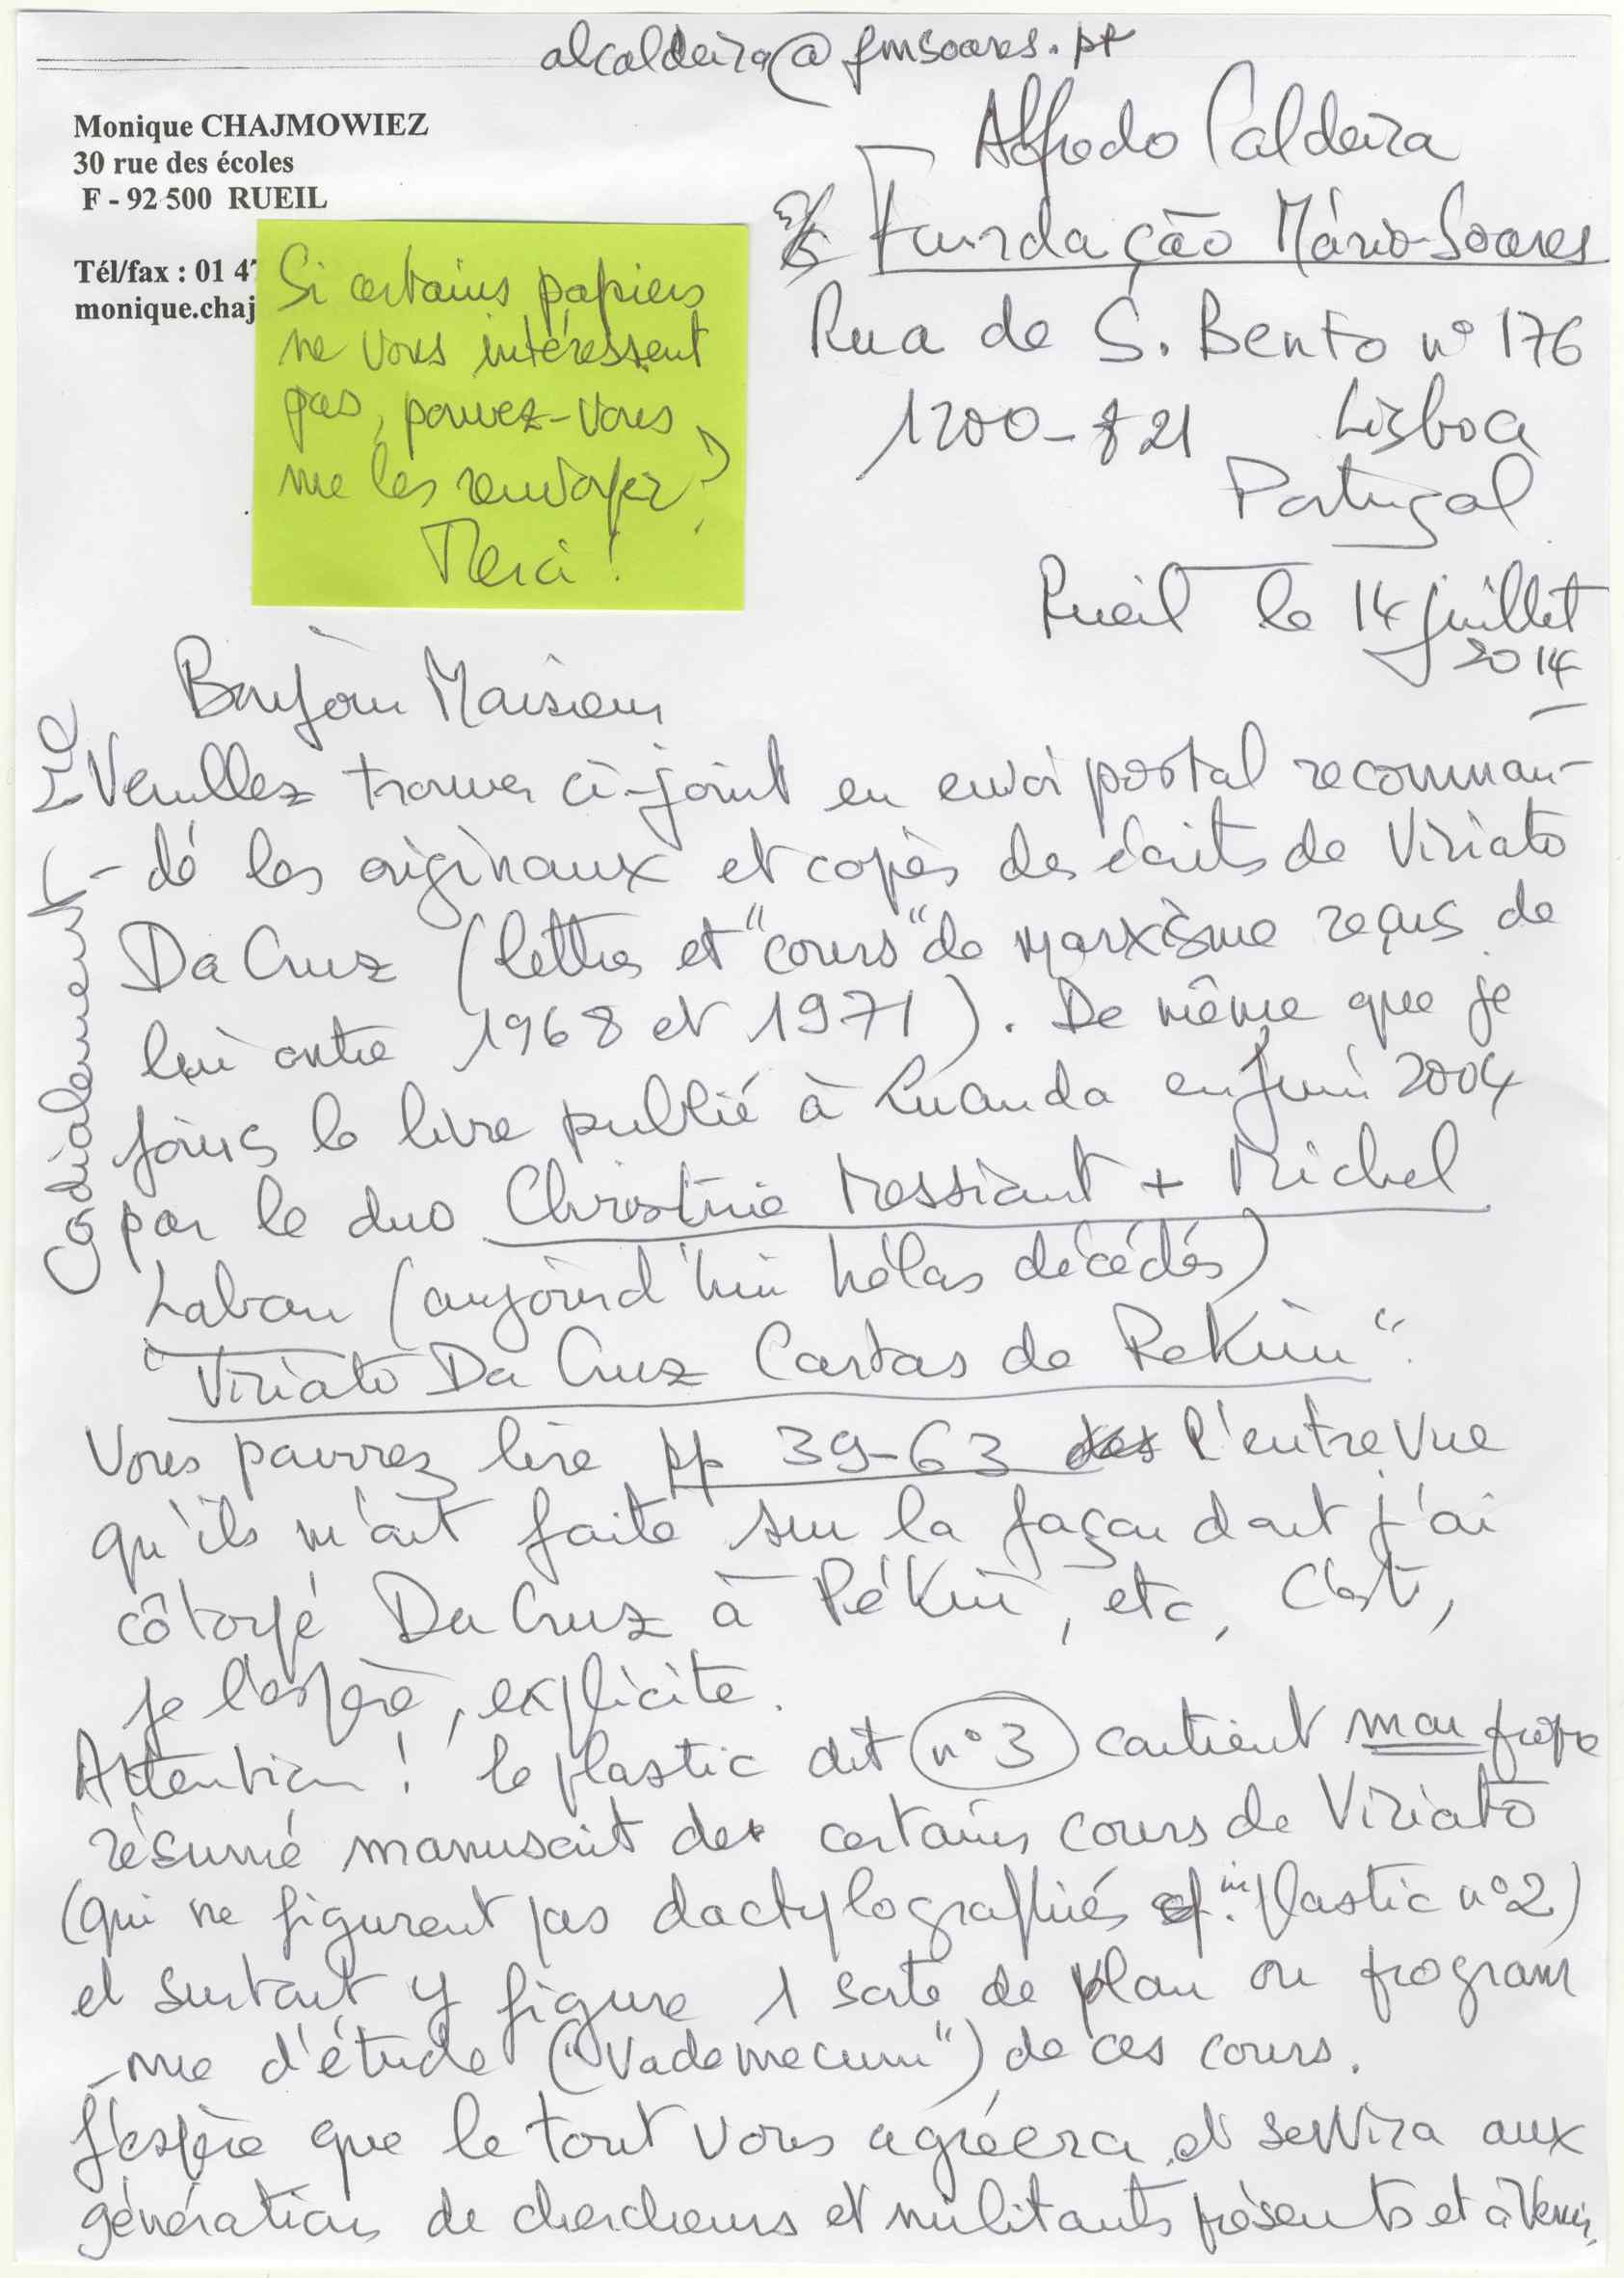 alcaldeira@fmsoares.pt
Monique CHAJMOWIEZ
30 rue des écoles
F - 92 500 RUEIL
Tél/fax : 01 47
monique.chaj
Si certains papiers
ne vous intéressent
pas, pouvez-vous
me les renvoyer ?
Merci !
Alfredo Caldeira
Fundação Mário Soares
Rua de S. Bento nº 176
1200-821 Lisboa
Portugal
Rueil le 14 juillet
2014
Bonjour Monsieur
Veuillez trouver ci-joint en envoi postal recomman-
-dé les originaux et copies des écrits de Viriato
Da Cruz (lettres et "cours" de marxisme reçus de
lui entre 1968 et 1971). De même que je
joins le livre publié à Luanda en juin 2004
par le duo Christine Messiant + Michel
Laban (aujourd'hui hélas décédés)
"Viriato Da Cruz Cartas de Pekin".
Vous pourrez lire pp 39-63 l'entrevue
qu'ils m'ont faite sur la façon dont j'ai
côtoyé Da Cruz à Pékin, etc, C'est,
je l'espère, explicite.
Attention ! le plastic dit n°3 contient mon propre
résumé manuscrit de certains cours de Viriato
(qui ne figurent pas dactylographiés cf. in plastic n°2)
et surtout y figure 1 sorte de plan ou program
-me d'étude ("Vademecum") de ces cours.
J'espère que le tout vous agréera et servira aux
générations de chercheurs et militants présents et à venir.
Cordialement